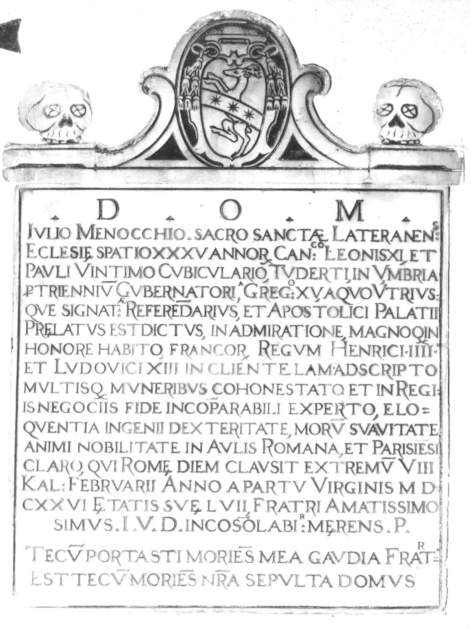 . D . O . M .
IVLIO MENOCCHIO. SACRO SANCTÆ LATERANENS:
ECLESIĘ SPATIO XXXV ANNOR CAN:CO LEONIS XI, ET
PAVLI V INTIMO CVBICVLARIO, TVDERTI, IN VMBRIA
P TRIENNIV̄ GVBERNATORI, GREG:O XV A QVO VTRIVS-
QVE SIGNAT: REFERĒDARIVS, ET APOSTOLICI PALATII
PRĘLATVS EST DICTVS, IN ADMIRATIONE, MAGNOQ IN
HONORE HABITO, FRANCOR, REGVM HENRICI·IIII·
ET LVDOVICI XIII IN CLIENTELAM·ADSCRIPTO
MVLTISQ MVNERIBVS COHONESTATO ET IN REGI-
IS NEGOCIĪS FIDE INCOP̄ARABILI EXPERTO, ELO=
QVENTIA INGENII DEXTERITATE, MORV̄ SVAVITATE
ANIMI NOBILITATE IN AVLIS ROMANA, ET PARISIĒSI
CLARO, QVI ROMĘ DIEM CLAVSIT EXTREMV̄ VIII
KAL: FEBRVARII ANNO A PARTV VIRGINIS M D
CXXVI ĘTATIS SVĘ LVII, FRATRI AMATISSIMO
SIMVS. I. V. D. INCOSOLABI:R MĘRENS. P.
TECV̄ PORTASTI MORIĒS MEA GAVDIA FRATR-
EST TECV̄ MORIĒS NR̄A SEPVLTA DOMVS